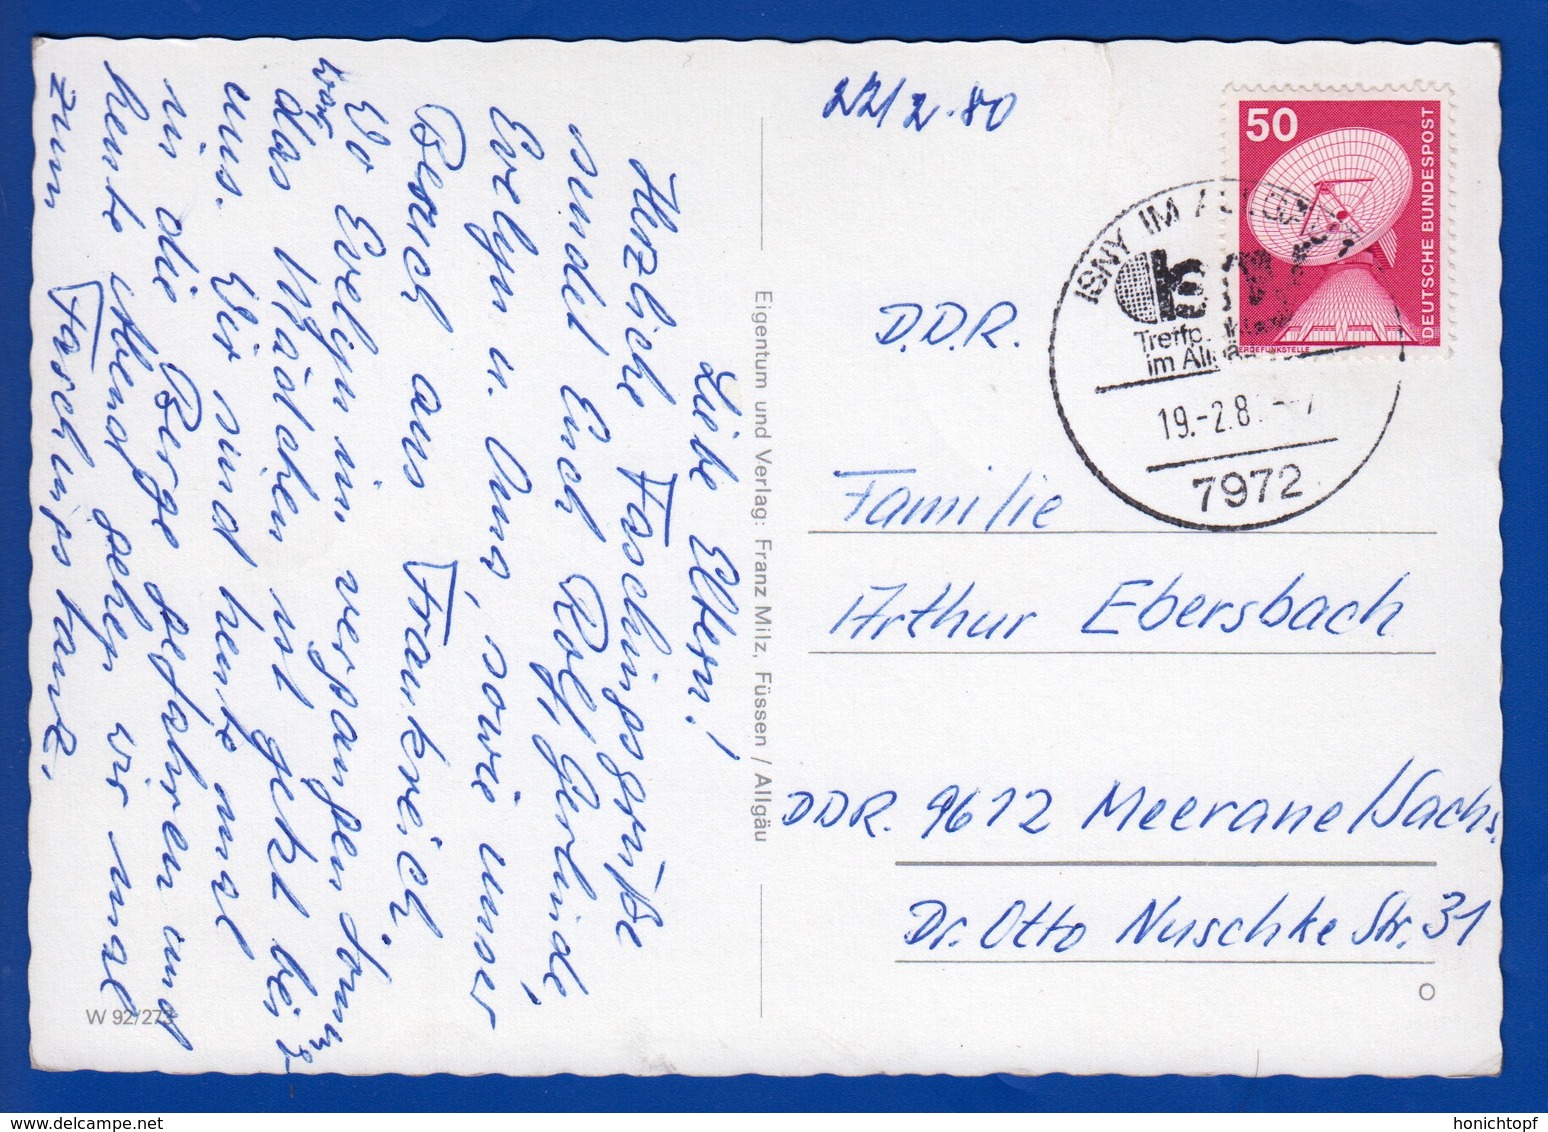 22/2.80
50
DEUTSCHE BUNDESPOST
ERDEFUNKSTELLE
ISNY IM ALLGÄU
Treffpunkt
im Allgäu
19.-2.8
7972
D.D.R.
Familie
Arthur Ebersbach
DDR. 9612 Meerane/Sachs.
Dr. Otto Nuschke Str. 31
O
Eigentum und Verlag: Franz Milz, Füssen / Allgäu
W 92/273
Liebe Eltern!
Herzliche Faschingsgrüße
sendet Euch Rolf, Gerlinde,
Evelyn u. Anna, sowie unser
Besuch aus Frankreich.
Wo Evelyn im vergangen Somm
war
das Mädchen ist jetzt bei
uns. Wir sind heute mal
in die Berge gefahren und
heute Abend gehen wir mal
zum Faschingstanz.
honichtopf